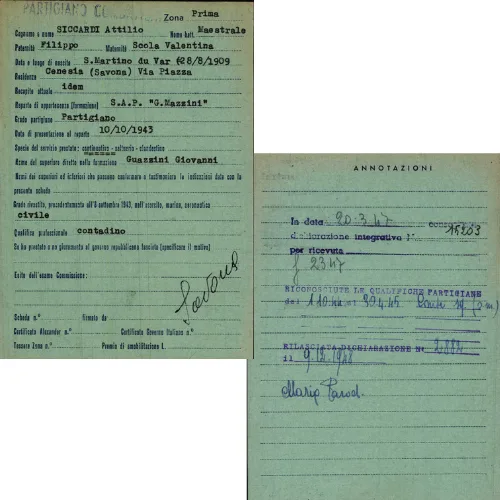 PARTIGIANO
Zona Prima
Cognome e nome SICCARDI Attilio Nome batt. Maestrale
Paternità Filippo Maternità Scola Valentina
Data e luogo di nascita S.Martino du Var (28/8/1909
Residenza Cenesia (Savona) Via Piazza
Recapito attuale idem
Reparto di appartenenza (formazione) S.A.P. "G.Mazzini"
Grado partigiano Partigiano
Data di presentazione al reparto 10/10/1943
Specie del servizio prestato: continuativo - saltuario - clandestino
Nome del superiore diretto nella formazione Guazzini Giovanni
Nomi dei superiori ed inferiori che possono confermare e testimoniare le indicazioni date con la
presente scheda
Grado rivestito, precedentemente all'8 settembre 1943, nell'esercito, marina, aeronautica
civile
Qualifica professionale contadino
Se ha prestato o no giuramento al governo repubblicano fascista (specificare il motivo)
Esito dell'esame Commissione:
Savona
Scheda n.° firmata da
Certificato Alexander n.° Certificato Governo Italiano n.°
Tessera Zona n.° Premio di smobilitazione L.
ANNOTAZIONI
In data 20-3-47
dichiarazione integrativa N° 15203
per ricevuta
2347
RICONOSCIUTE LE QUALIFICHE PARTIGIANE
dal 1.10.44 al 30.4.45
RILASCIATA DICHIARAZIONE N° 2884
il 9.12.1948
Mario Parodi